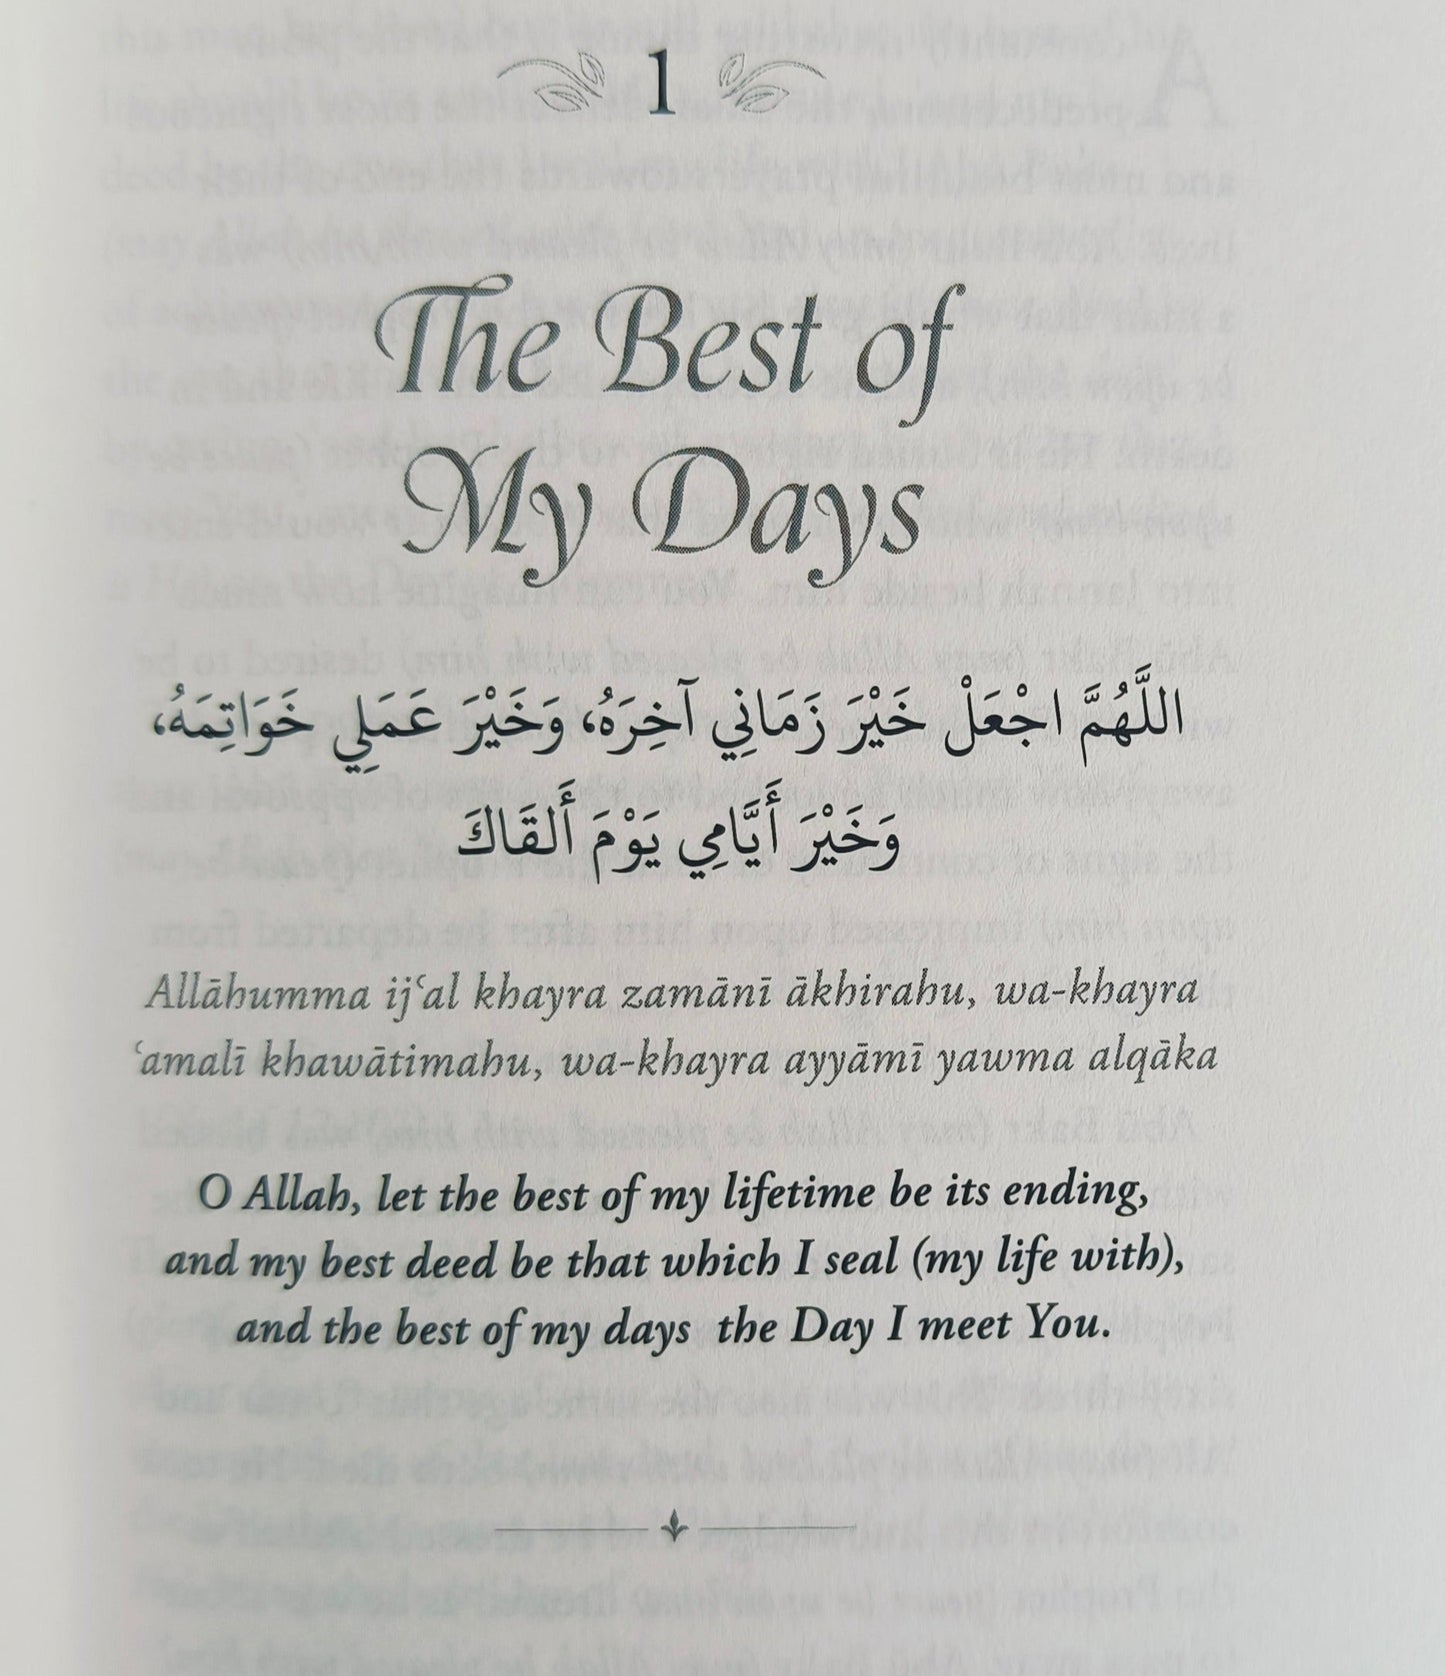 1
The Best of
My Days
اللَّهُمَّ اجْعَلْ خَيْرَ زَمَانِي آخِرَهُ، وَخَيْرَ عَمَلِي خَوَاتِمَهُ،
وَخَيْرَ أَيَّامِي يَوْمَ أَلقَاكَ
Allāhumma ijʿal khayra zamānī ākhirahu, wa-khayra
ʿamalī khawātimahu, wa-khayra ayyāmī yawma alqāka
O Allah, let the best of my lifetime be its ending,
and my best deed be that which I seal (my life with),
and the best of my days  the Day I meet You.